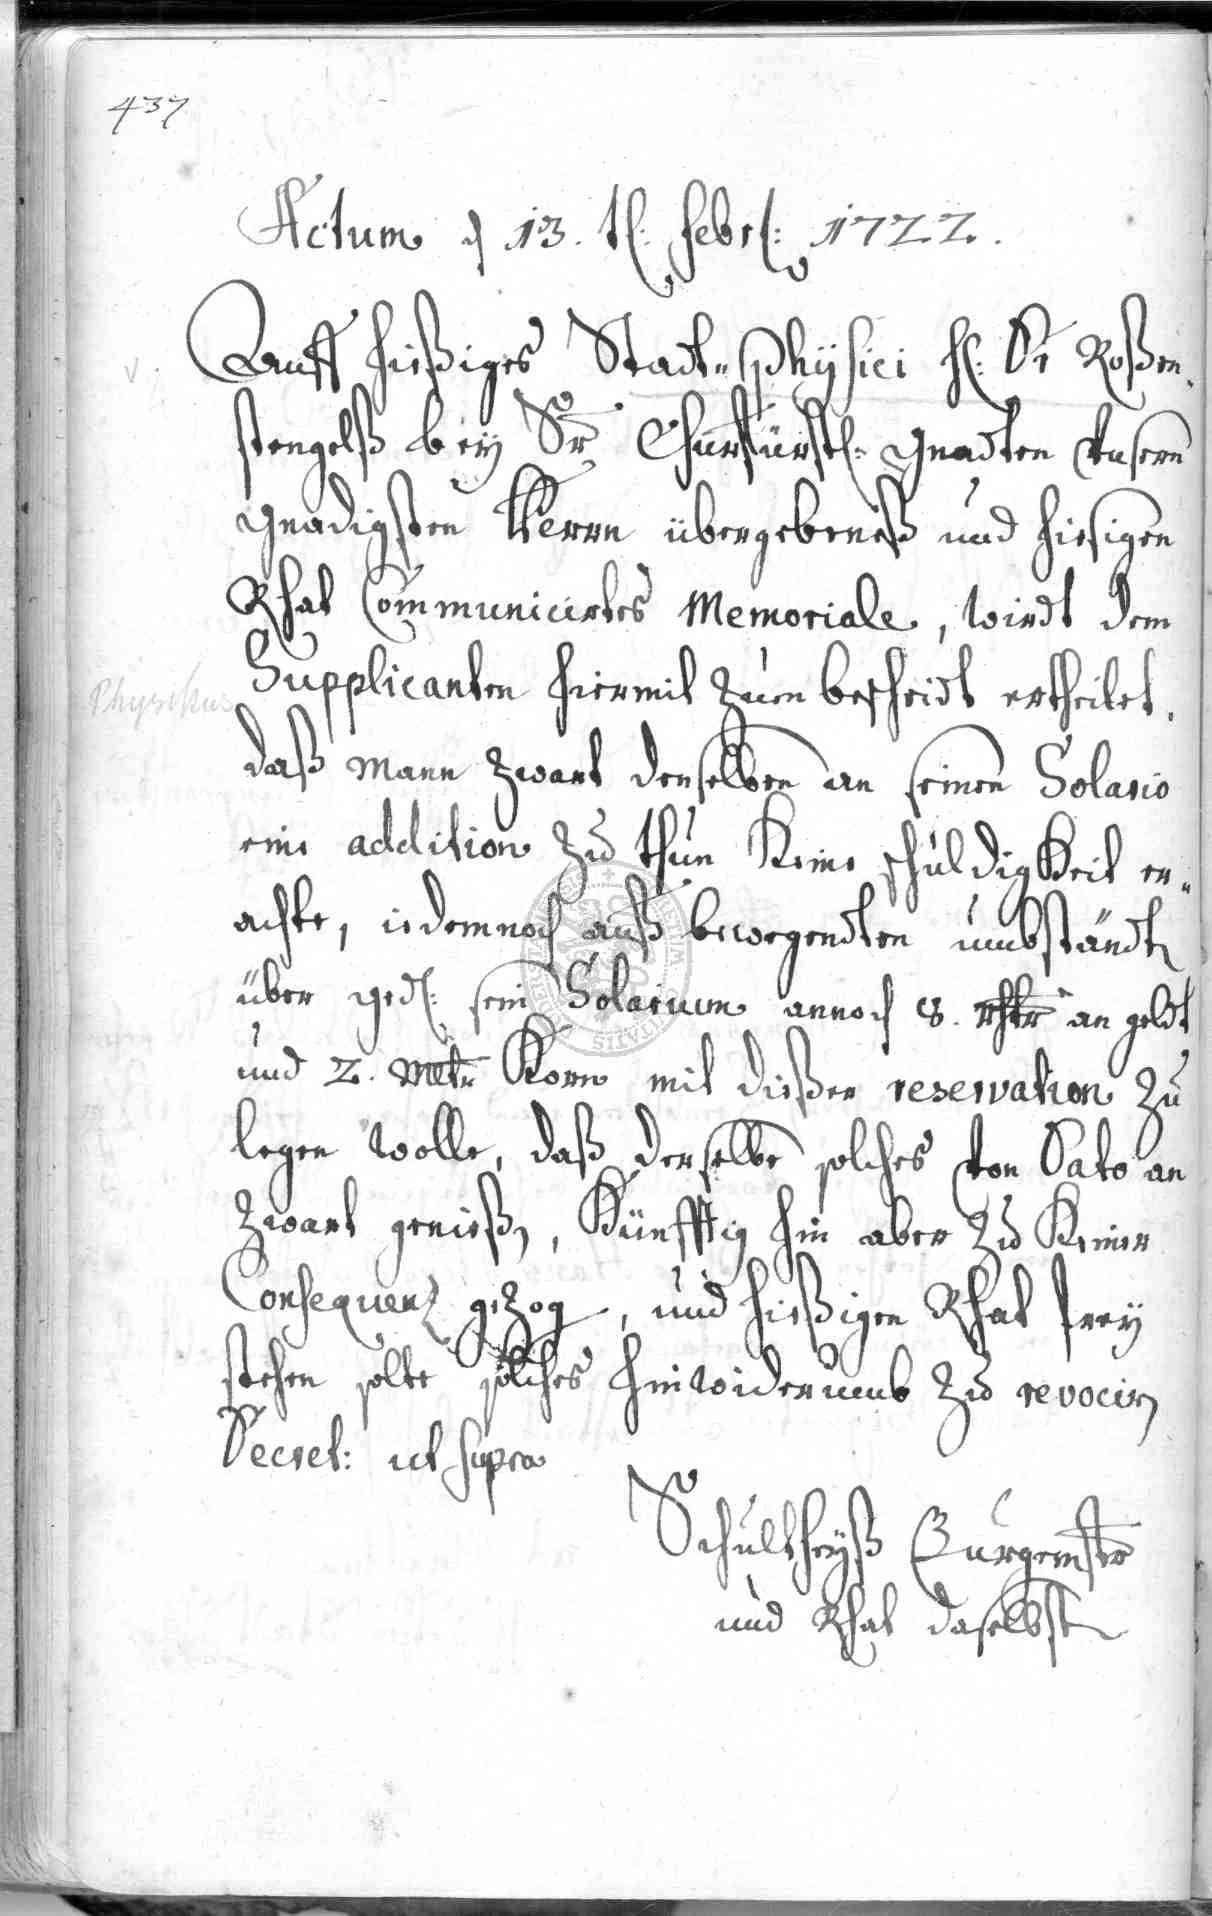 437
Actum d 13. tl: febrl: 1722.
Auff hießiges Stadt=Physici H: Dr Roßen=
stengelß bey Sr Churfürstl: Gnadten Vnsern
Gnadigsten Herrn übergebeneß und hiesigen
Rhat Communicirtes Memoriale, wirdt dem
Supplicanten hiermit zum bescheidt ertheilet.
Physikus
daß Mann zwart denselben an seinen Solario
eine addition zu thun Keine schuldigkeit er=
achte, iedennoch auß bewegendten umbständt
über gedl: sein Solarium annoch 8. rthr an geldt
und 2. Mltr Korn mit dießer reservation zu
legen wolle, daß derselbe solches von Dato an
zwart genieß, Künfftig hin aber zu Keiner
Consequenz gezog, und hießigen Rhat frey
stehen solte solches hinwiderumb zu revocir
Decret: ut supra
Schultheyß Burgemstr
und Rhat daselbst